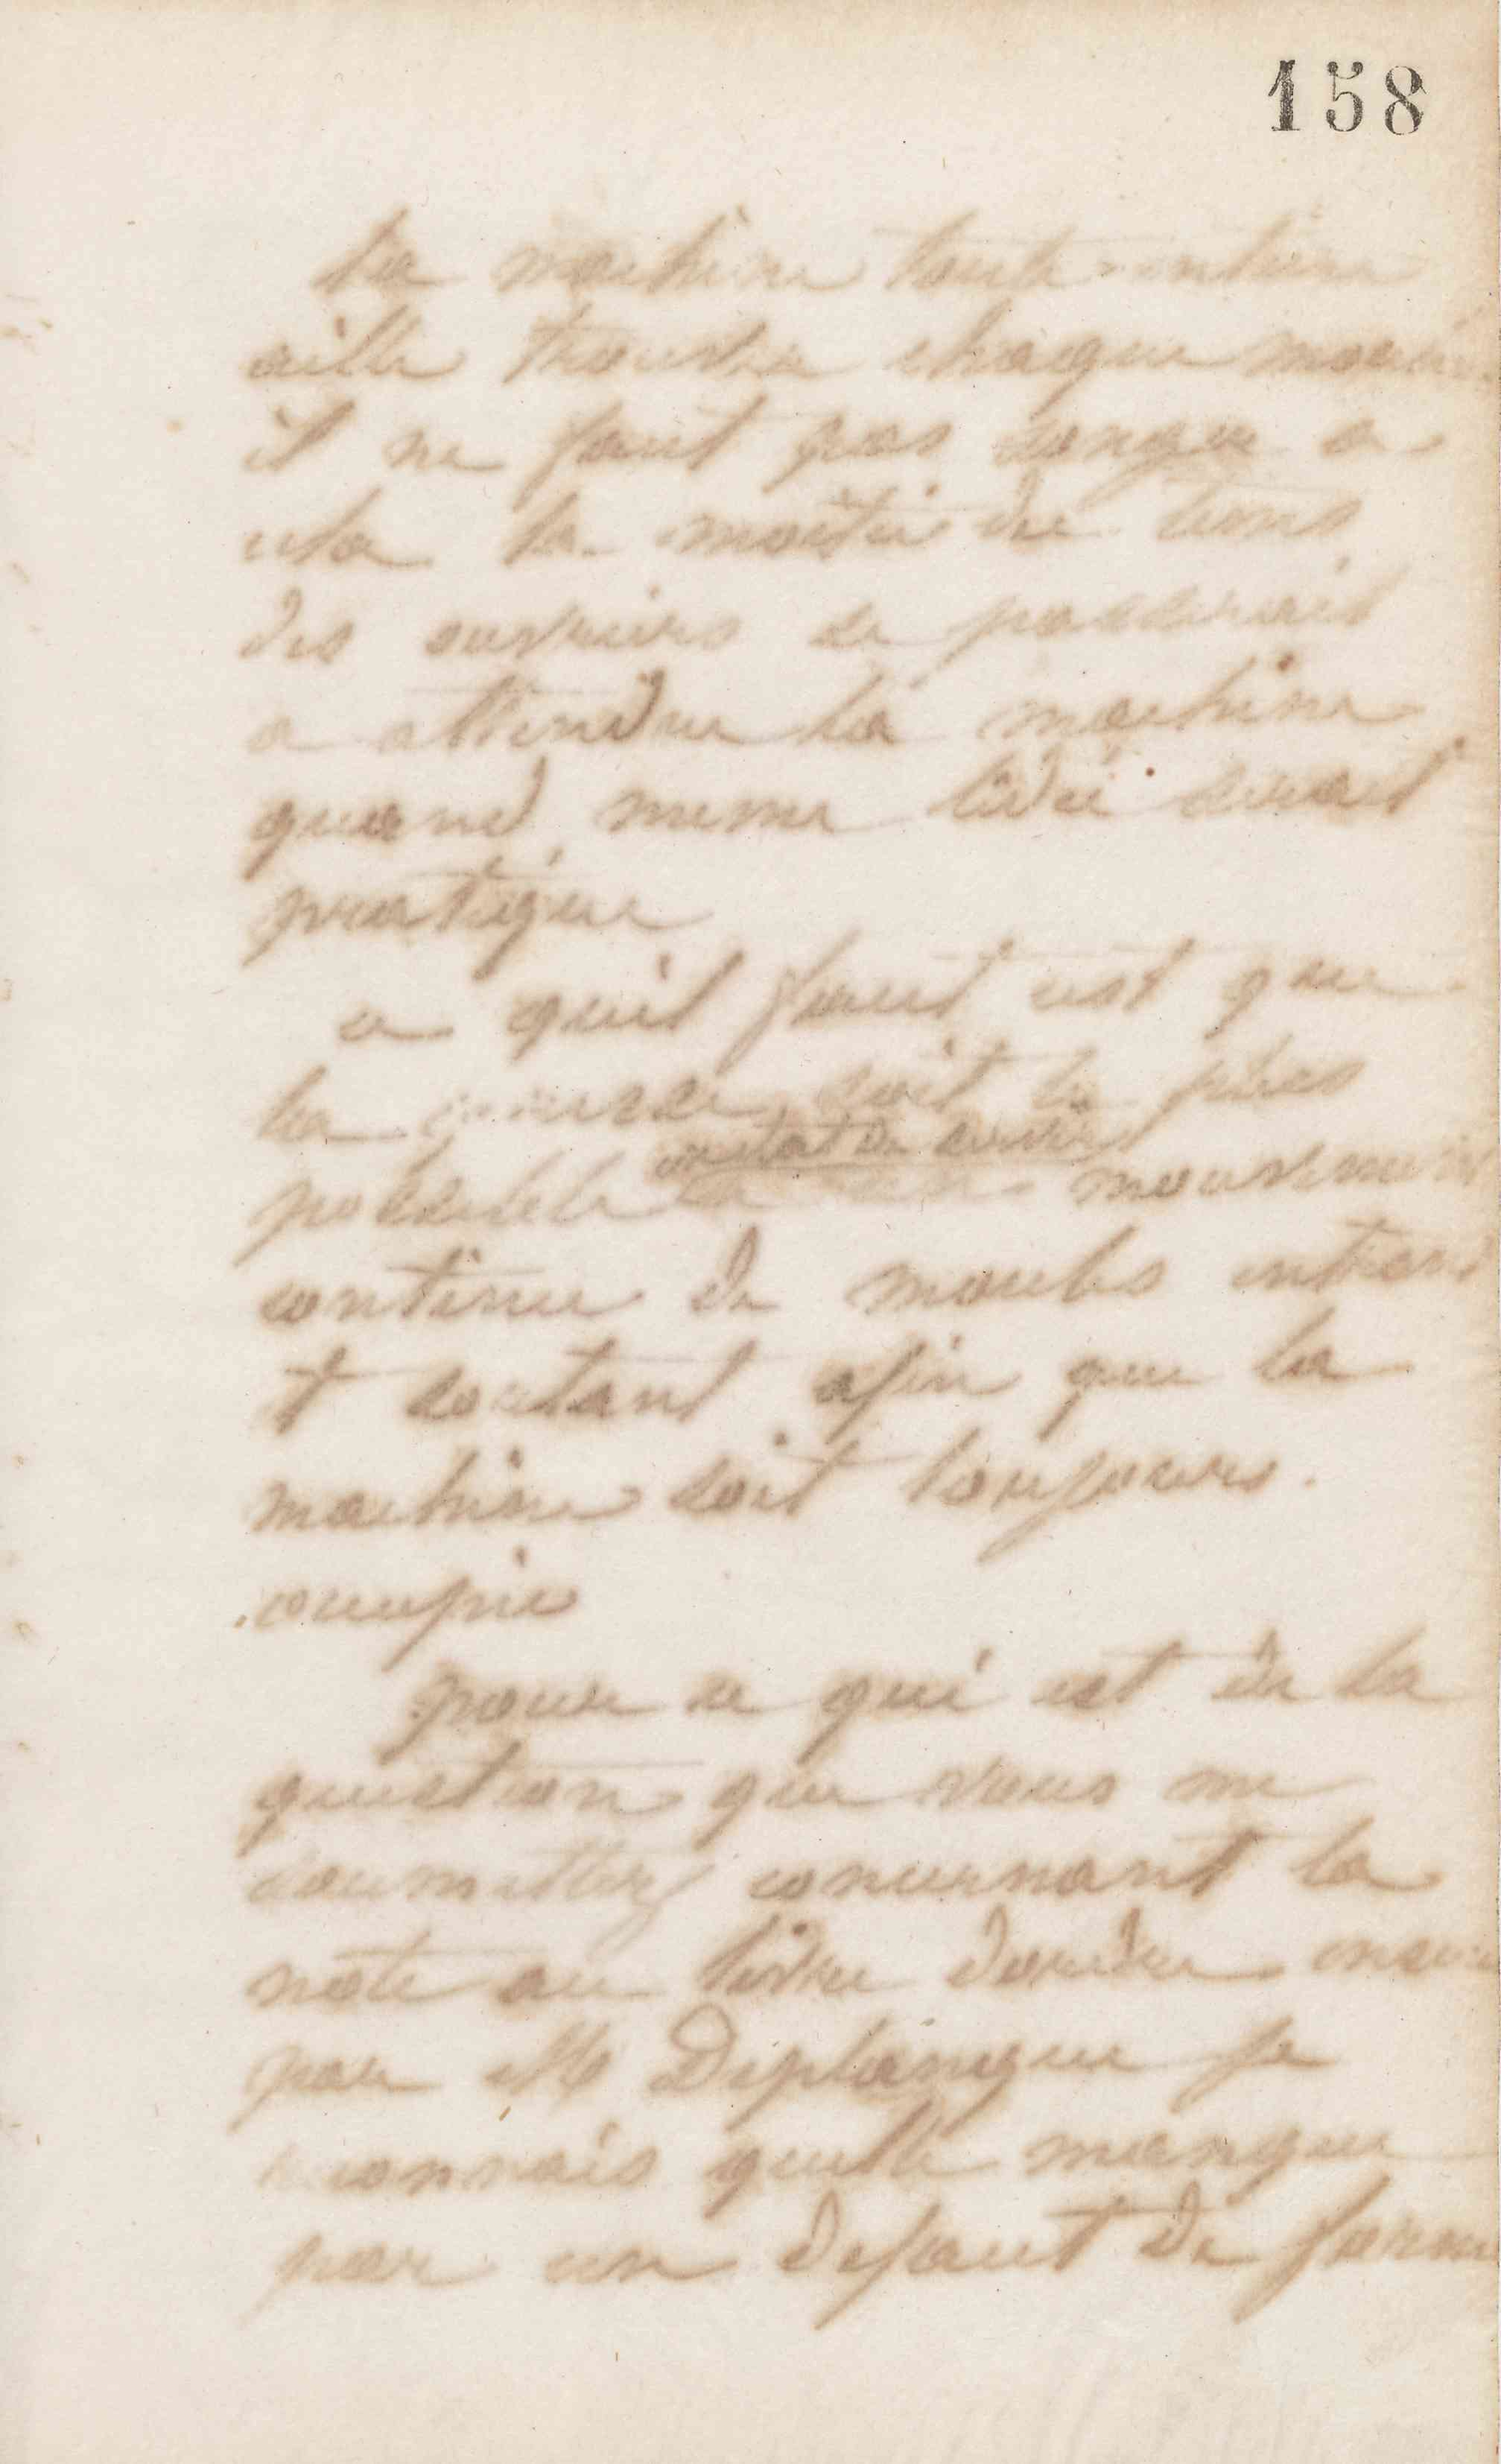 158
la machine toute entiere
aille trouver chaque moule
il ne faut pas songer a
cela la moitie du tems
des ouvriers se passerait
a attendre la machine
quand meme lidée serait
pratique
ce quil faut est que
la soit le plus
possible mouvement
continu de moules entrant
t sortant afin que la
machine soit toujours
occupée
pour ce qui est de la
question que vous me
soumettez concernant la
note au livre dordre
par M Deplanque je
reconnais quelle manque
par un defaut de forme